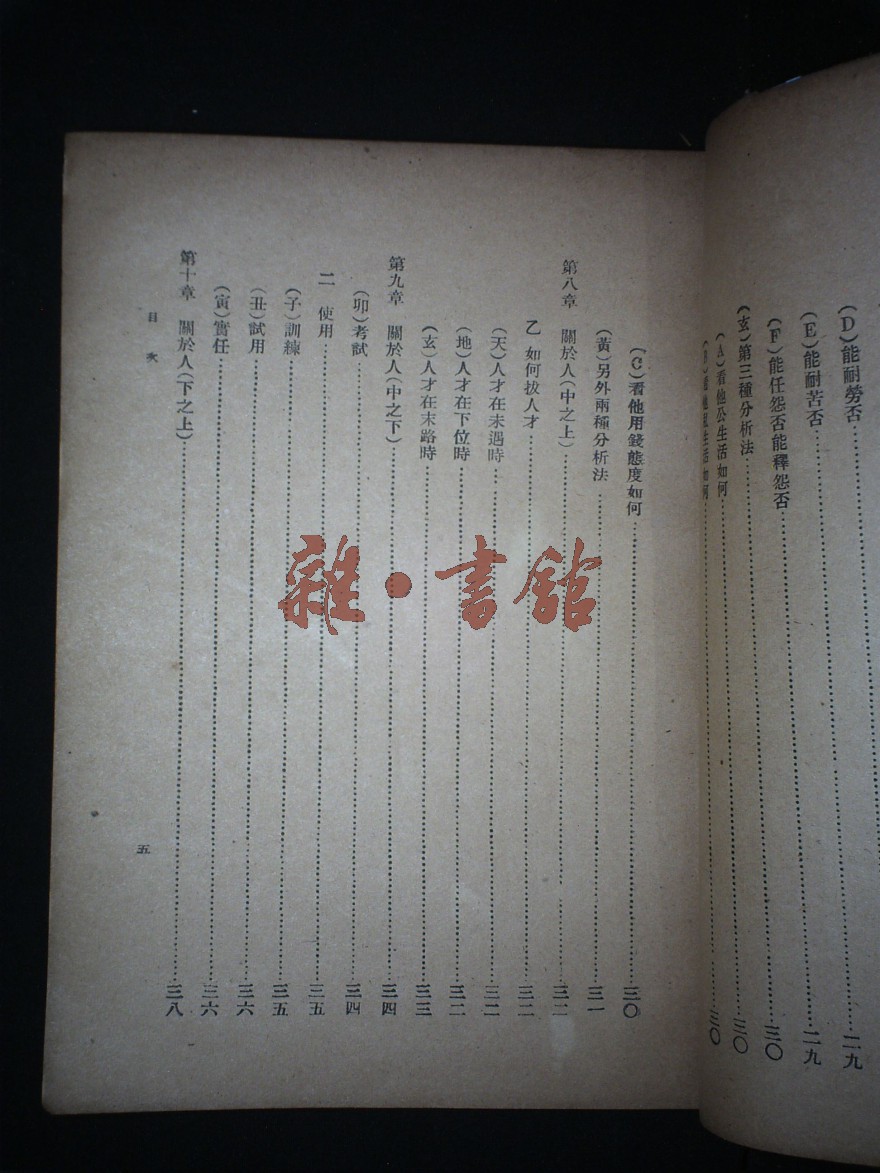 (D)能耐勞否……二九
(E)能耐苦否……二九
(F)能任怨否能釋怨否……三〇
(玄)第三種分析法……三〇
(A)看他公生活如何……三〇
(C)看他用錢態度如何……三〇
(黃)另外兩種分析法……三一
第八章　關於人(中之上)……三二
乙　如何拔人才……三二
(天)人才在未遇時……三二
(地)人才在下位時……三二
(玄)人才在末路時……三三
第九章　關於人(中之下)……三四
(卯)考試……三四
二　使用……三五
(子)訓練……三五
(丑)試用……三六
(寅)實任……三六
第十章　關於人(下之上)……三八
目次
五
雜·書館